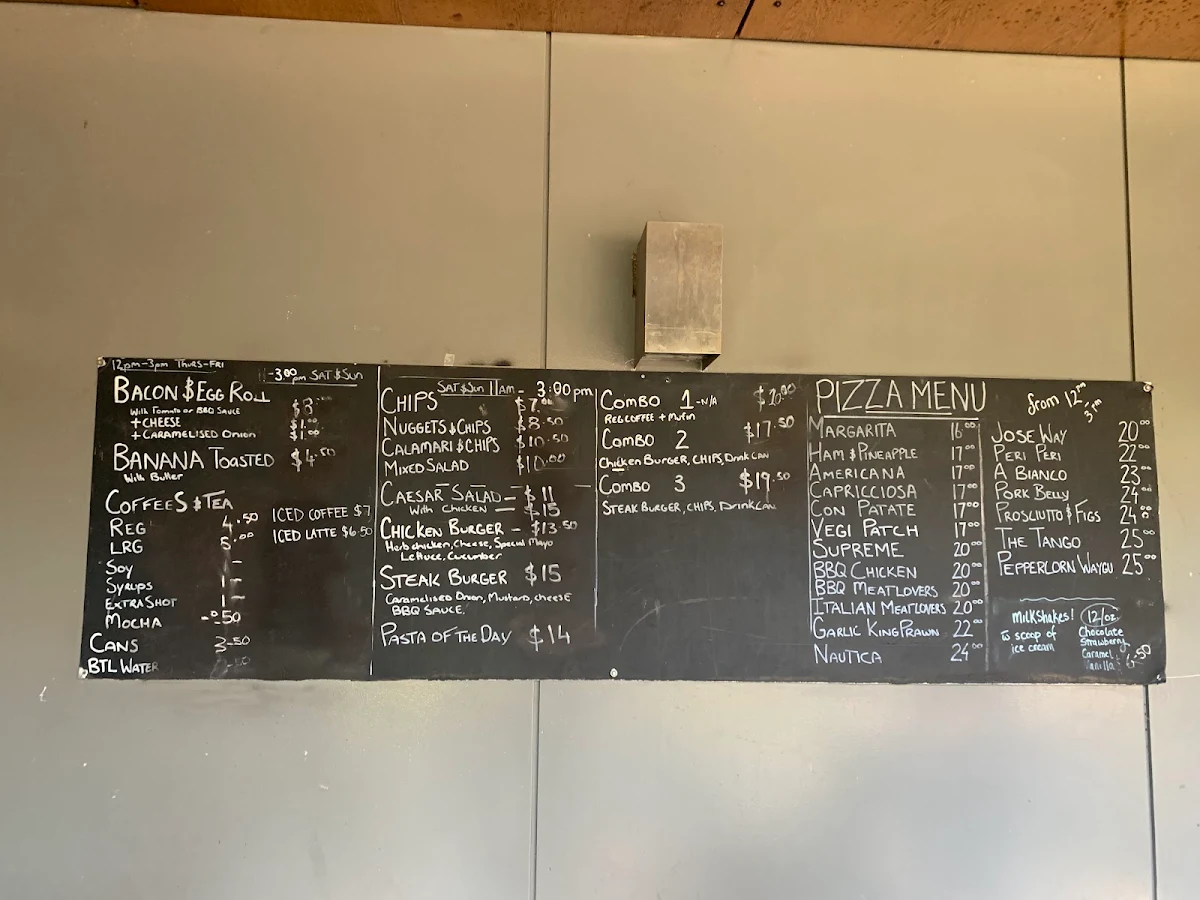 12pm-3pm THURS-FRI
-3.00pm SAT & SUN
BACON & EGG ROLL $8.00
With Tomato or BBQ SAUCE
+ CHEESE $1.00
+ CARAMELISED Onion $1.00
BANANA TOASTED $4.50
With Butter
COFFEES & TEA
REG 4.50
LRG 5.00
SOY
SYRUPS
EXTRA SHOT
MOCHA -.50
CANS 3-50
BTL WATER
ICED COFFEE $7
ICED LATTE $6.50
SAT & Sun 11am - 3:00pm
CHIPS $7.00
NUGGETS & CHIPS $8.50
CALAMARI & CHIPS $10.50
MIXED SALAD $10.00
CAESAR SALAD - $11
With CHICKEN - $15
CHICKEN BURGER - $13.50
Herb chicken, Cheese, Special Mayo
Lettuce, Cucumber
STEAK BURGER $15
Caramelised Onion, Mustard, cheese
BBQ SAUCE
PASTA OF THE DAY $14
COMBO 1 -N/A
REG COFFEE + Mufin
COMBO 2 $17.50
Chicken Burger, CHIPS, Drink CAN
COMBO 3 $19.50
STEAK BURGER, CHIPS, Drink CAN
PIZZA MENU
from 12pm
3pm
MARGARITA 16.00
HAM & PINEAPPLE 17.00
AMERICANA 17.00
CAPRICCIOSA 17.00
CON PATATE 17.00
VEGI PATCH 17.00
SUPREME 20.00
BBQ CHICKEN 20.00
BBQ MEATLOVERS 20.00
ITALIAN MEATLOVERS 20.00
GARLIC KING PRAWN 22.00
NAUTICA 24.00
JOSE WAY 20.00
PERI PERI 22.00
A BIANCO 23.00
PORK BELLY 24.00
PROSCIUTTO & FIGS 24.00
THE TANGO 25.00
PEPPERCORN WAYGU 25.00
MILKSHAKES!
scoop of
ice cream
12/oz
Chocolate
Strawberry
Caramel
Vanilla
6-50